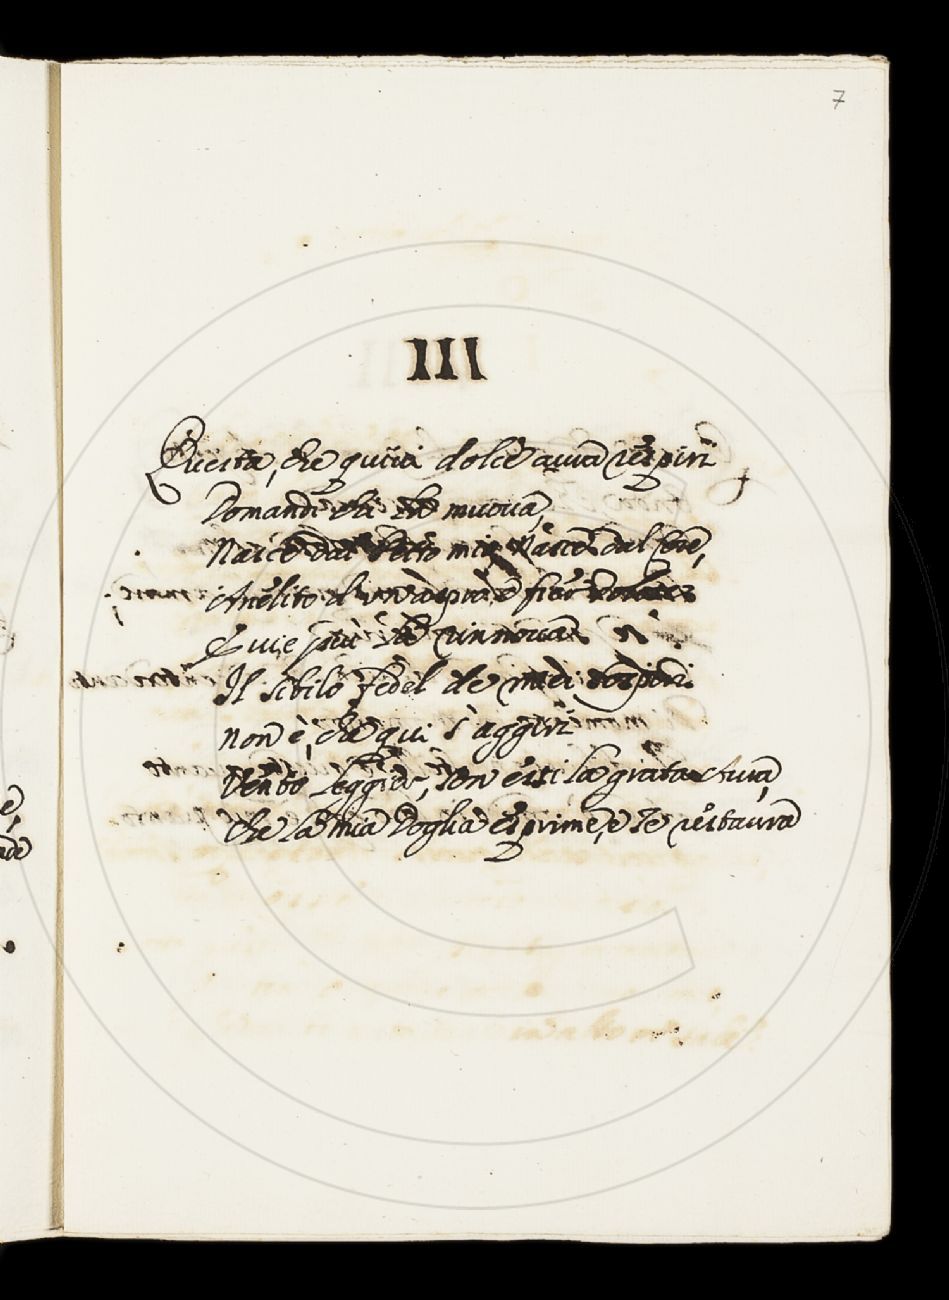 7
III
Questa, che quivi dolce aura respiri
Domandi chi che muova,
Nasce dal Petto mio, Nasce dal Core,
Anelito d'un aspro, e fier
Qui, e più si rinnova
Il sibilo fedel de miei sospiri.
Non è, che qui s'aggiri
Vento leggier, non è sì la grata Aura,
Che la mia doglia esprime, e se restaura